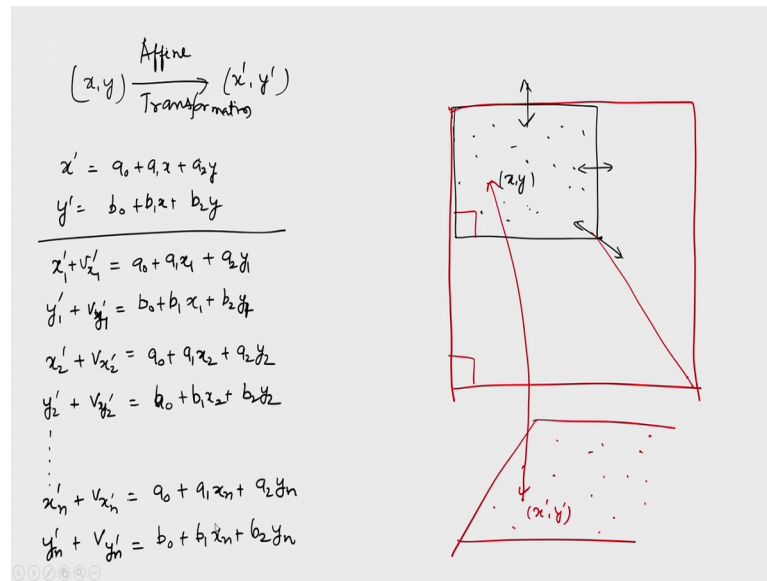 Affine
(x,y) ⟶ (x', y')
Transformation
x' = a₀+a₁x+a₂y
y' = b₀+b₁x+ b₂y
x₁'+Vx₁' = a₀+a₁x₁ + a₂y₁
y₁' + Vy₁' = b₀+b₁ x₁+ b₂y₁
x₂' + Vx₂' = a₀+ a₁x₂ + a₂y₂
y₂' + Vy₂' = b₀ +b₁x₂+ b₂y₂
xₙ' + Vxₙ' = a₀ + a₁xₙ+ a₂yₙ
yₙ' + Vyₙ' = b₀ + b₁xₙ+ b₂yₙ
(x,y)
(x',y')